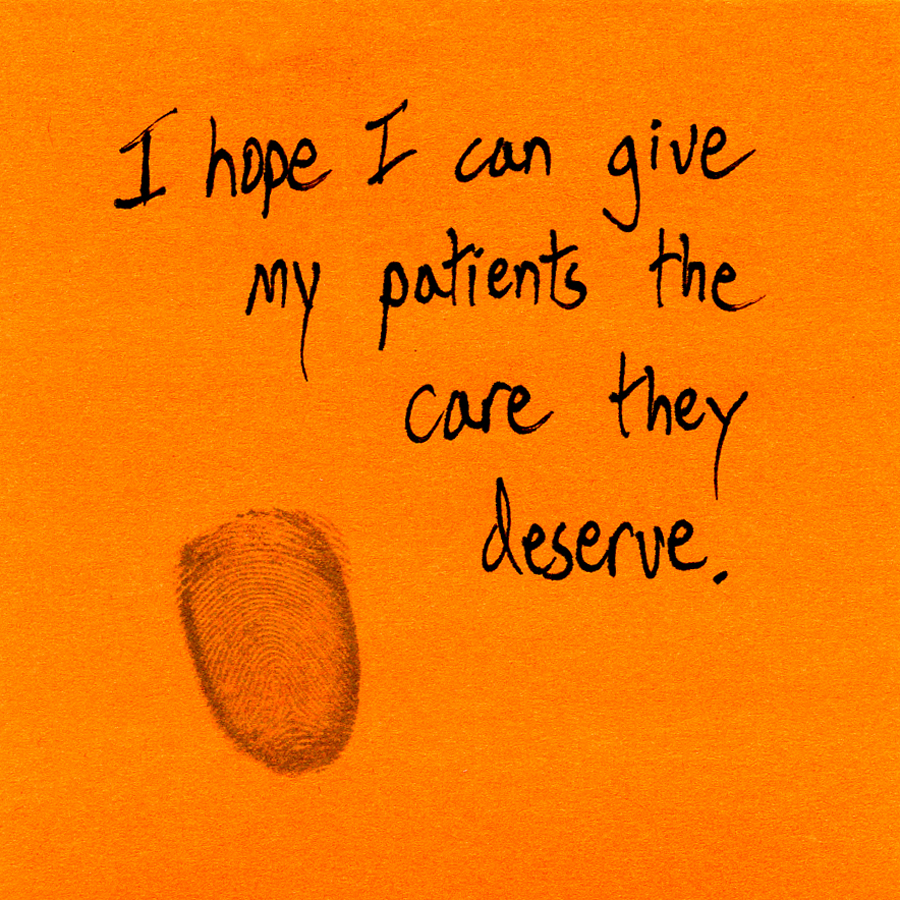 I hope I can give
my patients the
care they
deserve.